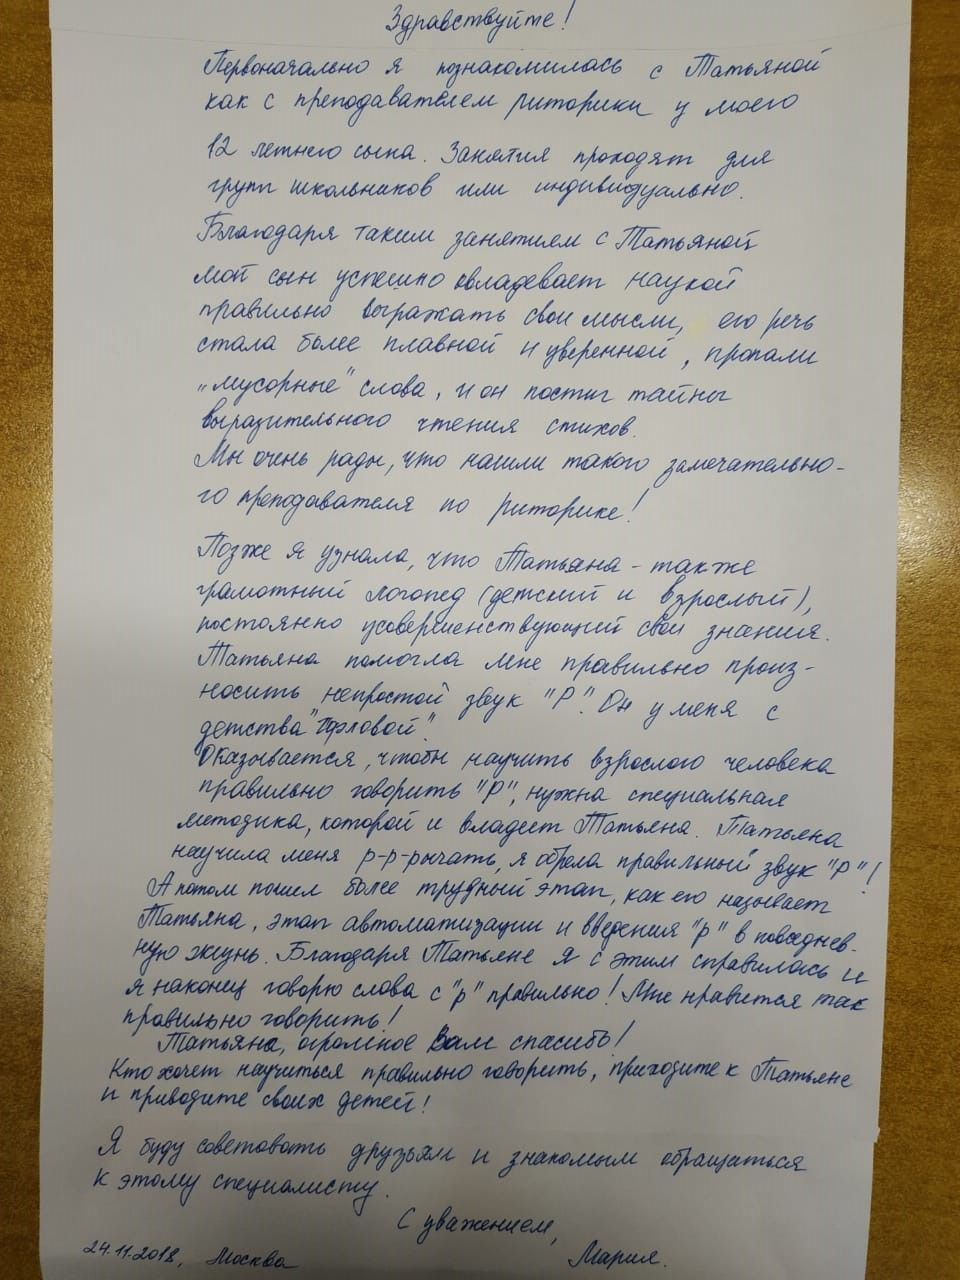 Здравствуйте!
Первоначально я познакомилась с Татьяной
как с преподавателем риторики у моего
12 летнего сына. Занятия проходят для
групп школьников или индивидуально.
Благодаря таким занятиям с Татьяной
мой сын успешно овладевает наукой
правильно выражать свои мысли, его речь
стала более плавной и уверенной, пропали
"мусорные" слова, и он постиг тайны
выразительного чтения стихов.
Мы очень рады, что нашли такого замечательно-
го преподавателя по риторике!
Позже я узнала, что Татьяна - также
грамотный логопед (детский и взрослый),
постоянно усовершенствующий свои знания.
Татьяна помогла мне правильно произ-
носить непростой звук "Р". Он у меня с
детства "горловой".
Оказывается, чтобы научить взрослого человека
правильно говорить "Р", нужна специальная
методика, которой и владеет Татьяна. Татьяна
научила меня р-р-рычать, я обрела правильный звук "Р"!
А потом пошел более трудный этап, как его называет
Татьяна, этап автоматизации и введения "р" в повседнев-
ную жизнь. Благодаря Татьяне я с этим справилась и
я наконец говорю слова с "р" правильно! Мне нравится так
правильно говорить!
Татьяна, огромное Вам спасибо!
Кто хочет научиться правильно говорить, приходите к Татьяне
и приводите своих детей!
Я буду советовать друзьям и знакомым обращаться
к этому специалисту.
С уважением,
24.11.2018, Москва Мария.